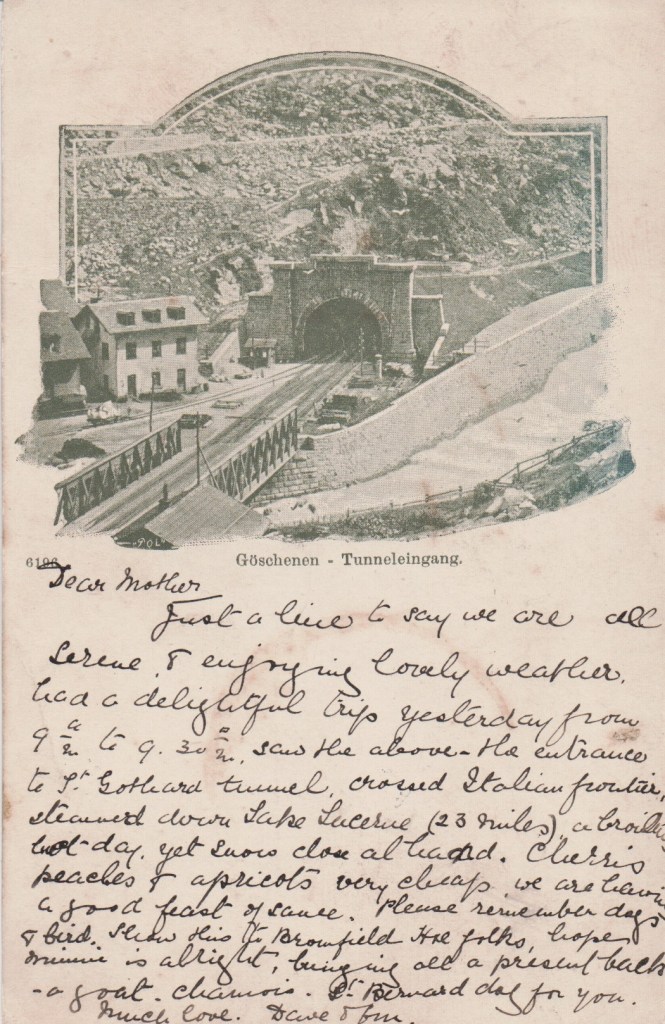 6196
Göschenen - Tunneleingang.
Dear Mother
Just a line to say we are all
serene & enjoying lovely weather.
had a delightful trip yesterday from
9 a/m to 9.30 , saw the above - the entrance
to St Gothard tunnel, crossed Italian frontier,
steamed down Lake Lucerne (23 miles), a broiling
hot day, yet snow close at hand. Cherris
peaches & apricots very cheap we are having
a good feast of same. Please remember dogs
& bird. Show this to Bromfield Hoe folks, hope
Minnie is alright, bringing all a present back
- a goat - chamois. St Bernard dog for you.
Much love. Dave &